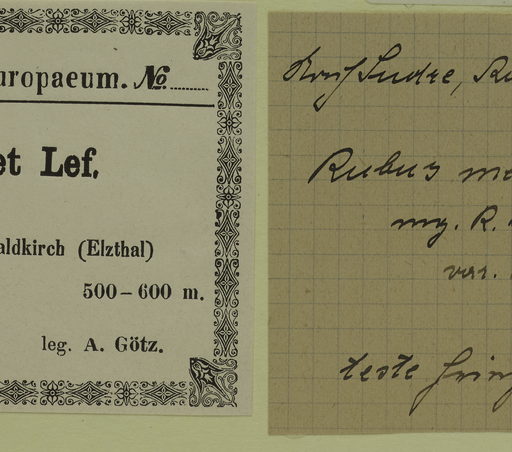 uropaeum. No.
et Lef.
aldkirch (Elzthal)
500–600 m.
leg. A. Götz.
Sudre,
Rubus
R.
var.
teste